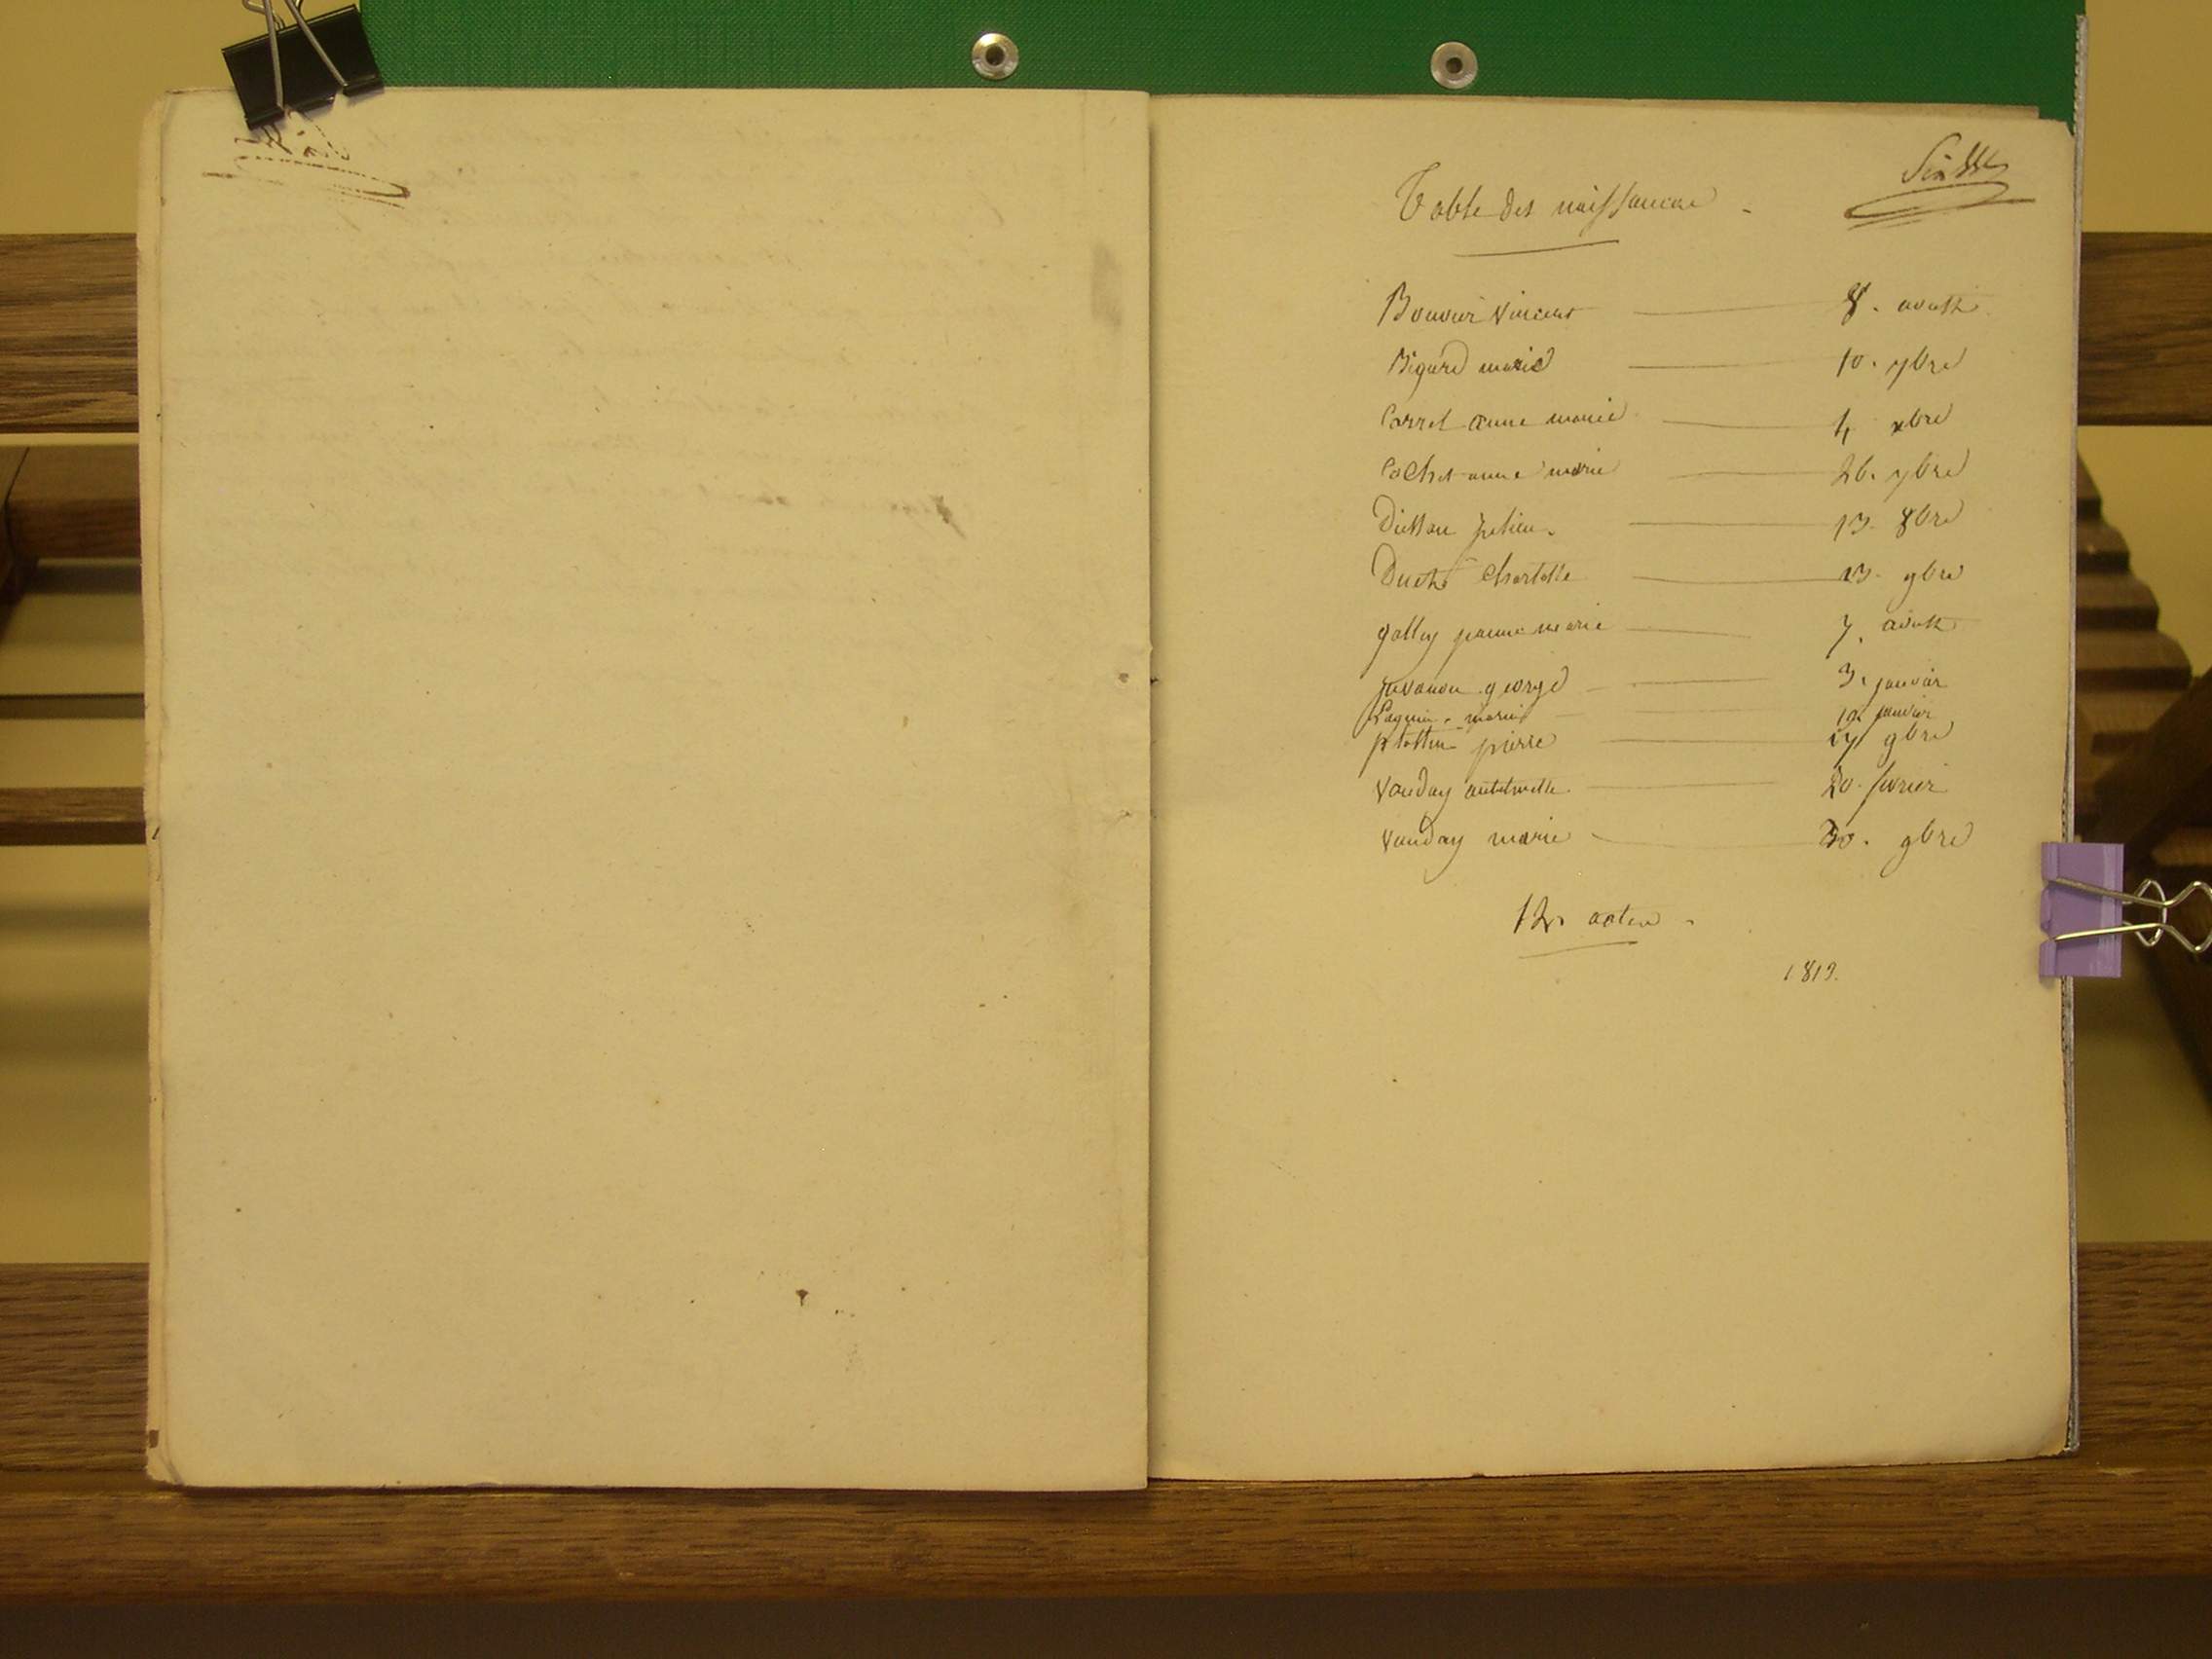 Table des naissances -
Bouvier vincent 8. aoust
Bigard marie 10. 7bre
Carrel anne marie 4 xbre
Cochet anne marie 26. 7bre
13. 8bre
Duché Charlotte 13. 9bre
Galley jeanne marie 7. aoust
Juvanon george 3. janvier
marie 19 janvier
pierre 17 9bre
Vauday antoinette 20. fevrier
Vauday marie 30. 9bre
12. actes -
1819.